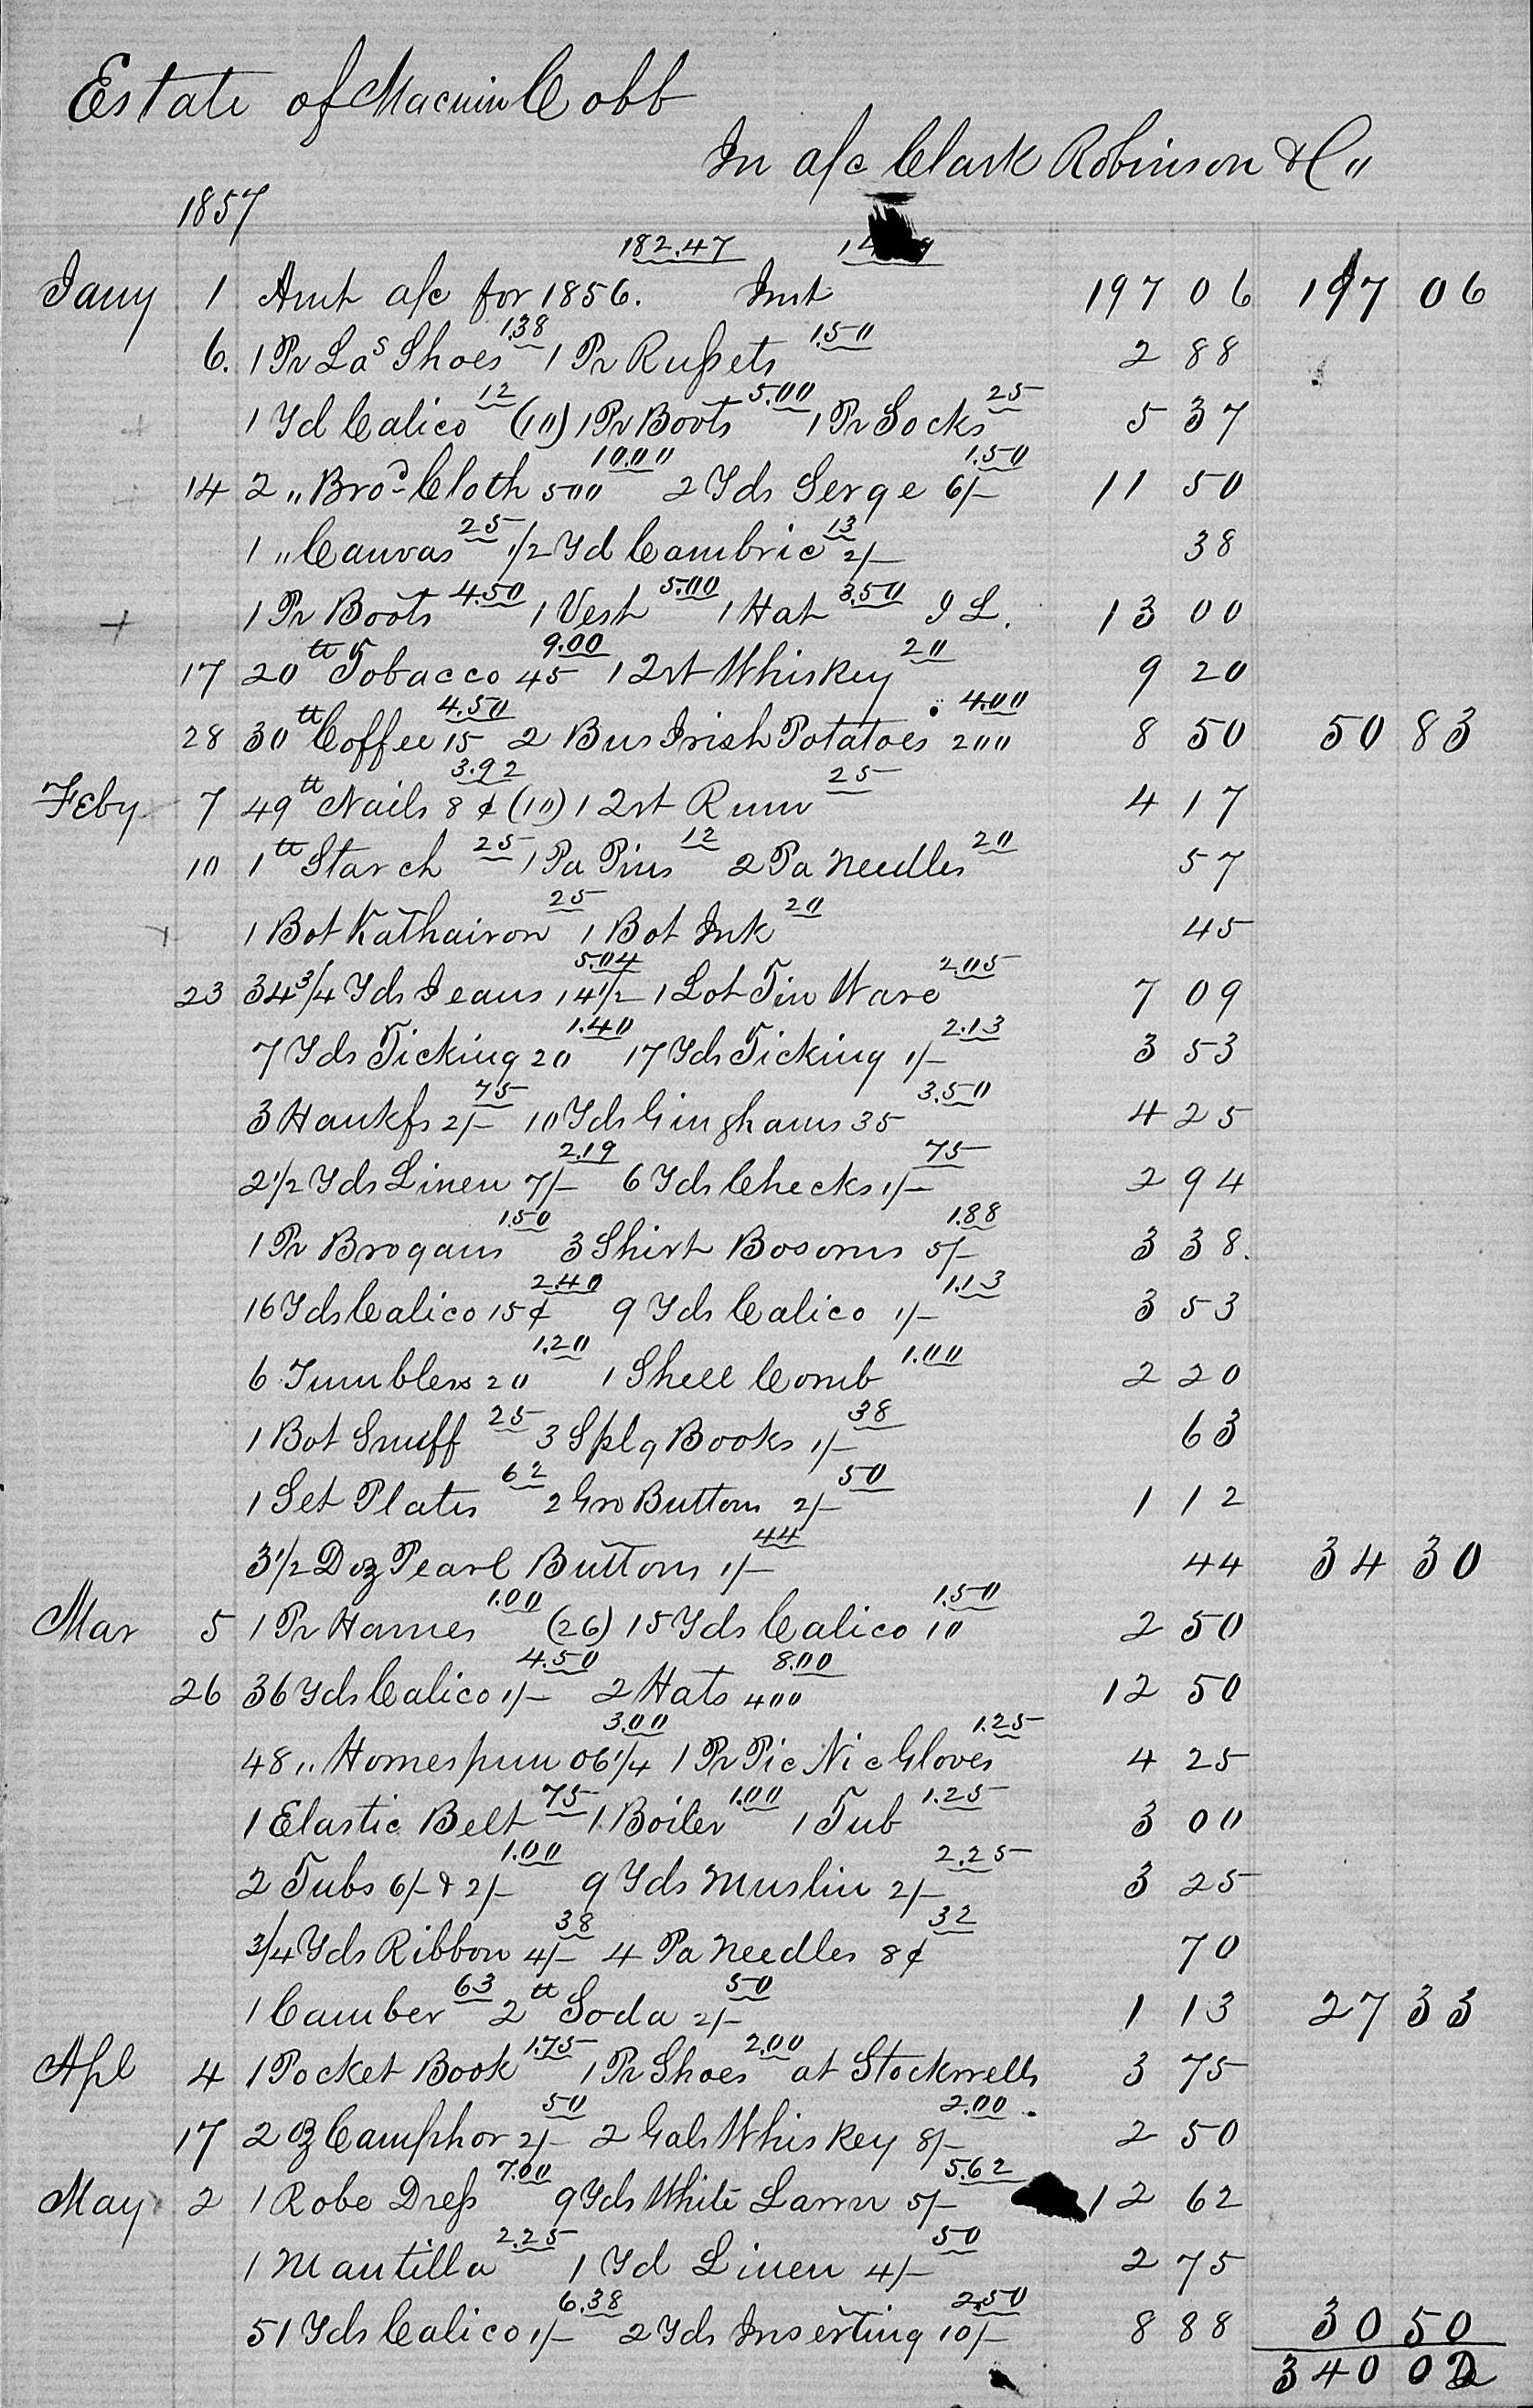 Estate of Macuin Cobb
In a/c Clark Robinson & Co
1857
182.47
Jany 1 Amt a/c for 1856. Int 197 06 197 06
6. 1 Pr Las Shoes 1.38 1 Pr Russets 1.50 2 88
1 Yd Calico 12 (10) 1 Pr Boots 5.00 1 Pr Socks 25 5 37
14 2 " Brod Cloth 500 10.00 2 Yds Serge 6/- 1.50 11 50
1 " Canvas 25 1/2 Yd Cambric 2/- 13 38
1 Pr Boots 4.50 1 Vest 5.00 1 Hat 3.50 J L. 13 00
17 20 tt Tobacco 45 9.00 1 Qrt Whiskey 20 9 20
28 30 tt Coffee 15 4.50 2 Bus Irish Potatoes 200 4.00 8 50 50 83
Feby 7 49 tt Nails 8 ¢ 3.92 (10) 1 Qrt Rum 25 4 17
10 1 tt Starch 25 1 Pa Pins 12 2 Pa Needles 20 57
1 Bot Kathairon 25 1 Bot Ink 20 45
23 34 3/4 Yds Jeans 14 1/2 5.04 1 Lot Tin Ware 2.05 7 09
7 Yds Ticking 20 1.40 17 Yds Ticking 1/- 2.13 3 53
3 Hankfs 2/- 75 10 Yds Ginghams 35 3.50 4 25
2 1/2 Yds Linen 7/- 2.19 6 Yds Checks 1/- 75 2 94
1 Pr Brogans 1.50 3 Shirt Bosoms 5/- 1.88 3 38.
16 Yds Calico 15 ¢ 2.40 9 Yds Calico 1/- 1.13 3 53
6 Tumblers 20 1.20 1 Shell Comb 1.00 2 20
1 Bot Snuff 25 3 Splg Books 1/- 38 63
1 Set Plates 62 2 Gro Buttons 2/- 50 1 12
3 1/2 Doz Pearl Buttons 1/- 44 44 34 30
Mar 5 1 Pr Hames 1.00 (26) 15 Yds Calico 10 1.50 2 50
26 36 Yds Calico 1/- 4.50 2 Hats 400 8.00 12 50
48 " Homespun 06 1/4 3.00 1 Pr Pic Nic Gloves 1.25 4 25
1 Elastic Belt 75 1 Boiler 1.00 1 Tub 1.25 3 00
2 Tubs 6/- & 2/- 1.00 9 Yds Muslin 2/- 2.25 3 25
3/4 Yds Ribbon 4/- 38 4 Pa Needles 8 ¢ 32 70
1 Camber 63 2 tt Soda 2/- 50 1 13 27 33
Apl 4 1 Pocket Book 1.75 1 Pr Shoes 2.00 at Stockwells 3 75
17 2 oz Camphor 2/- 50 2 Gals Whiskey 8/- 2.00 2 50
May 2 1 Robe Dress 7.00 9 Yds White Lawn 5/- 5.62 12 62
1 Mantilla 2.25 1 Yd Linen 4/- 50 2 75
51 Yds Calico 1/- 6.38 2 Yds Inserting 10/- 2.50 8 88 30 50
340 02